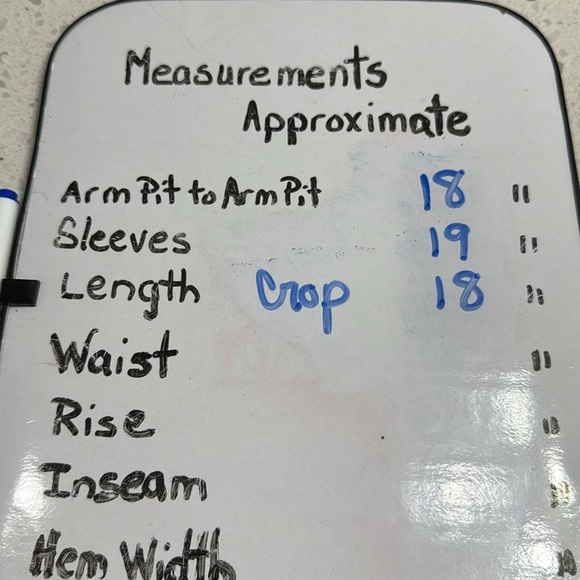 Measurements
Approximate
Arm Pit to Arm Pit 18 "
Sleeves 19 "
Length Crop 18 "
Waist "
Rise "
Inseam "
Hem Width "